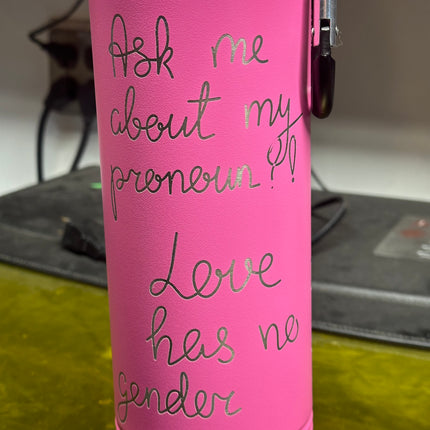 Ask me
about my
pronoun?!
Love
has no
gender